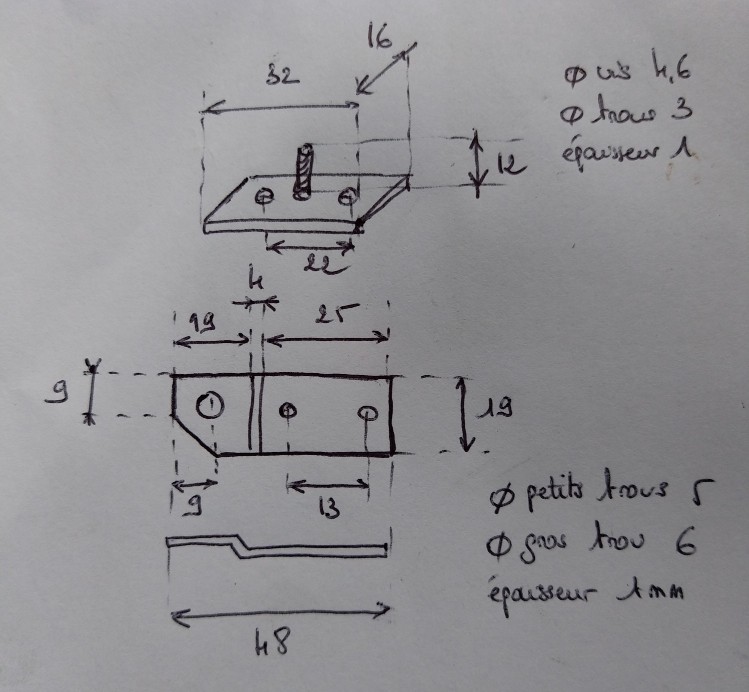 16
32
φ vis 4,6
φ trous 3
épaisseur 1
12
22
4
19
25
9
19
9
13
φ petits trous 5
φ gros trou 6
épaisseur 1mm
48